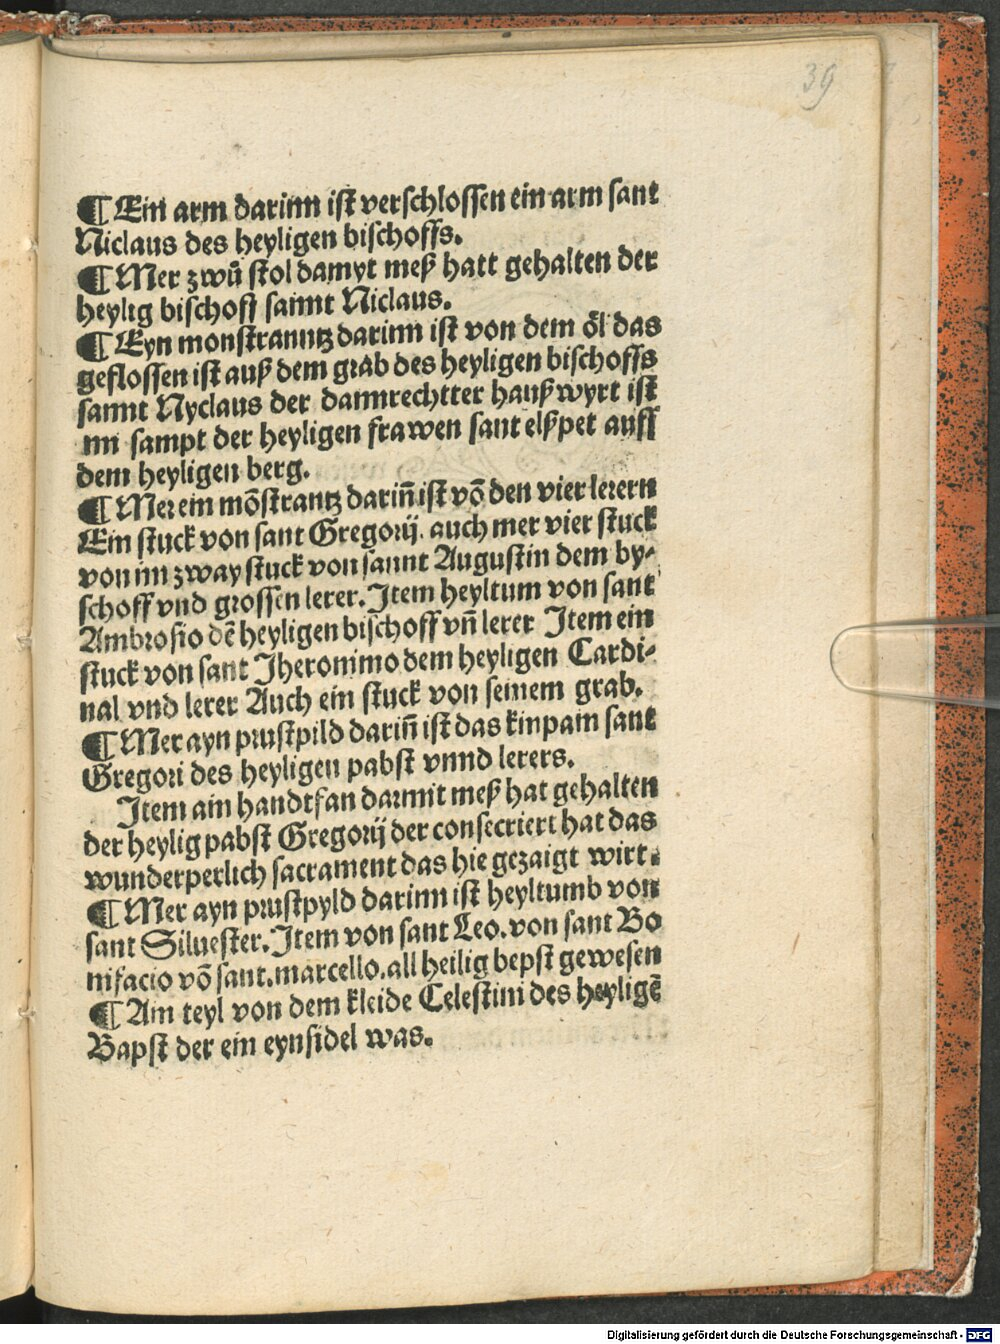 39
¶ Ein arm darinn ist verschlossen ein arm sant
Niclaus des heyligen bischoffs.
¶ Mer zwů stol damyt meß hatt gehalten der
heylig bischoff sannt Niclaus.
¶ Eyn monstranntz darinn ist von dem öl das
geflossen ist auß dem grab des heyligen bischoffs
sannt Nyclaus der dannrechtter haußwyrt ist
mi sampt der heyligen frawen sant elßpet auff
dem heyligen berg.
¶ Mer ein mōstrantz dariñ ist vō den vier lerern
Ein stuck von sant Gregorij. auch mer vier stuck
von im zway stuck von sannt Augustin dem by⸗
schoff vnd grossen lerer. Item heyltum von sant
Ambrosio dē heyligen bischoff vñ lerer Item ein
stuck von sant Jheronimo dem heyligen Cardi⸗
nal vnd lerer Auch ein stuck von seinem grab.
¶ Mer ayn prustpild dariñ ist das kinpain sant
Gregori des heyligen pabst vnnd lerers.
Item ain handtfan darmit meß hat gehalten
der heylig pabst Gregorij der consecriert hat das
wunderperlich sacrament das hie gezaigt wirt.
¶ Mer ayn prustpyld darinn ist heyltumb von
sant Siluester. Item von sant Leo. von sant Bo
nifacio vō sant. marcello. all heilig bepst gewesen
¶ Ain teyl von dem kleide Celestini des heyligē
Bapst der ein eynsidel was.
Digitalisierung gefördert durch die Deutsche Forschungsgemeinschaft - DFG